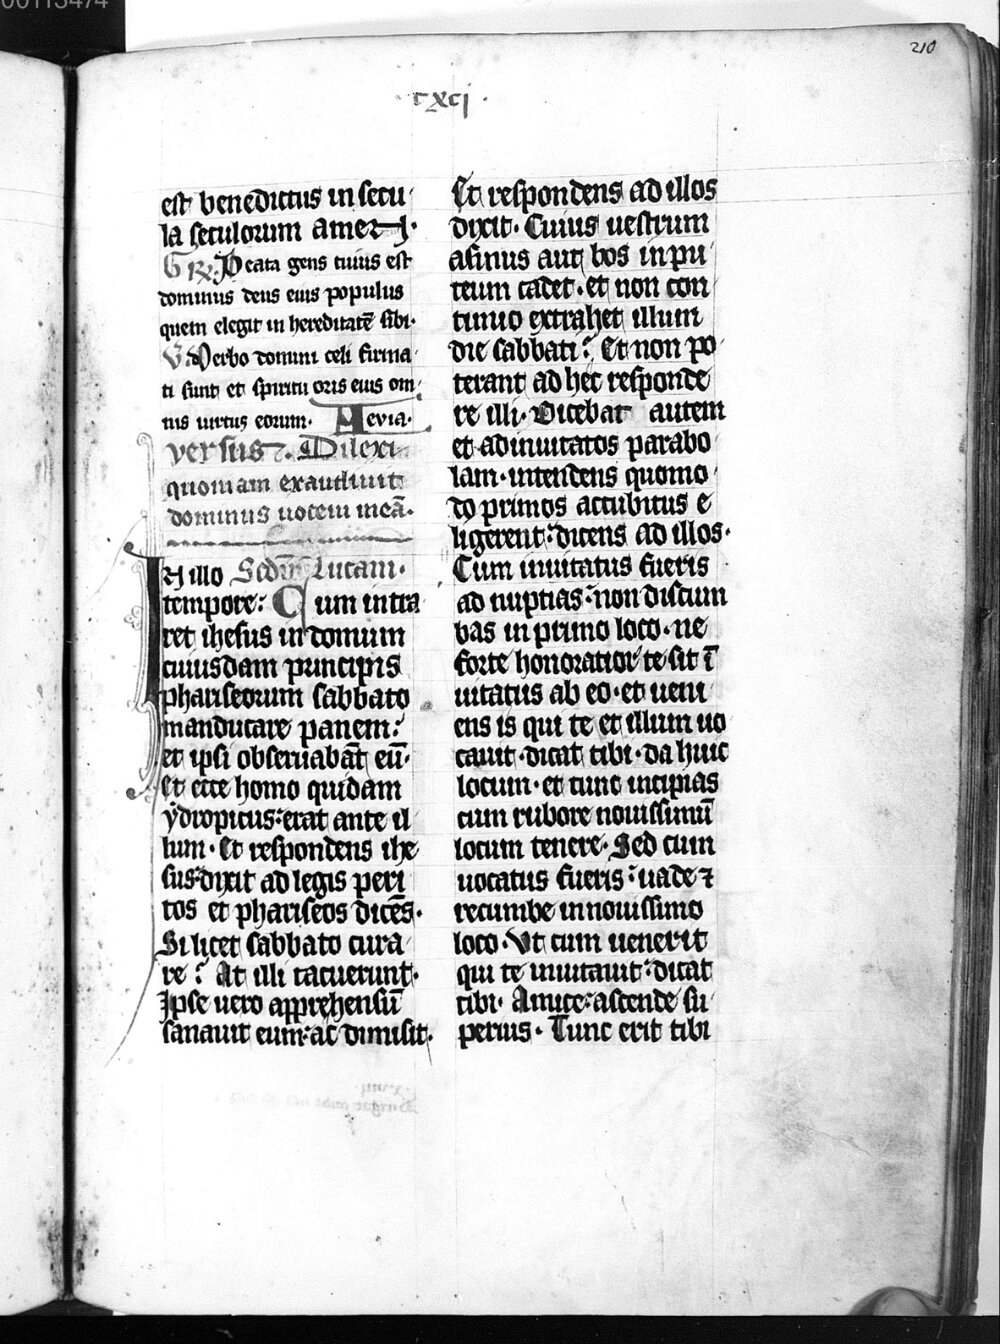 00113474
210
cxcj
est benedictus in secu
la seculorum amen.
Gr. Beata gens cuius est
dominus deus eius populus
quem elegit in hereditatē sibi.
V. Verbo domini celi firma
ti sunt et spiritu oris eius om
nis uirtus eorum. Aevia.
versus. Dilexi
quoniam exaudiuit
dominus uocem meā.
In illo Scdm Lucam.
tempore: Cum intra
ret ihesus in domum
cuiusdam principis
phariseorum sabbato
manducare panem:
et ipsi obseruabāt eū.
Et ecce homo quidam
ydropicus: erat ante il
lum. Et respondens ihe
sus: dixit ad legis peri
tos et phariseos dicēs.
Si licet sabbato cura
re? At illi tacuerunt.
Ipse uero apprehensū
sanauit eum: ac dimisit.
Et respondens ad illos
dixit. Cuius uestrum
asinus aut bos in pu
teum cadet. et non con
tinuo extrahet illum
die sabbati? Et non po
terant ad hec responde
re illi. Dicebat autem
et ad inuitatos parabo
lam. intendens quomo
do primos accubitus e
ligerent: dicens ad illos.
Cum inuitatus fueris
ad nuptias: non discum
bas in primo loco. ne
forte honoratior te sit ī
uitatus ab eo. et ueni
ens is qui te et illum uo
cauit. dicat tibi. da huic
locum. et tunc incipias
cum rubore nouissimū
locum tenere. Sed cum
uocatus fueris: uade ⁊
recumbe in nouissimo
loco. Vt cum uenerit
qui te inuitauit: dicat
tibi. Amice: ascende su
perius. Tunc erit tibi